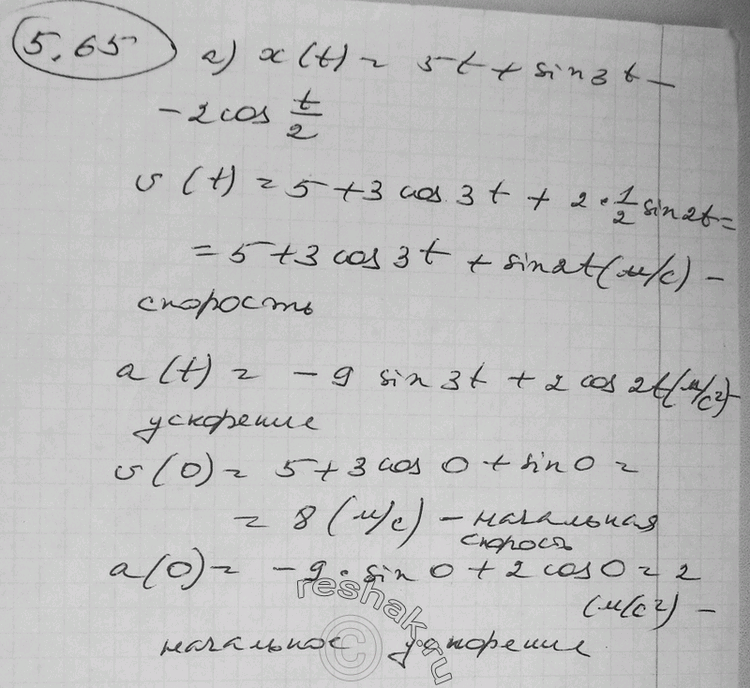 5.65 а) x(t) = 5t + sin3t –
– 2cos t/2
v(t) = 5 + 3 cos 3t + 2 · 1/2 sin2t =
= 5 + 3 cos 3t + sin2t (м/с) –
скорость
a(t) = – 9 sin 3t + 2 cos 2t (м/с²) –
ускорение
v(0) = 5 + 3 cos 0 + sin 0 =
= 8 (м/с) – начальная
скорость
a(0) = – 9 · sin 0 + 2 cos 0 = 2
(м/с²) –
начальное ускорение
reshak.ru
©